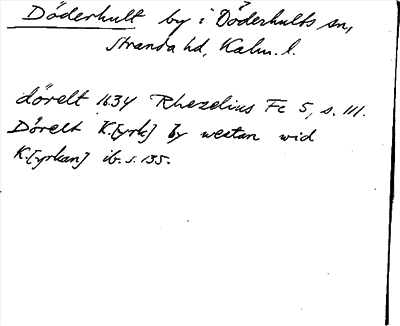 Döderhult by i Döderhults sn,
Stranda hd, Kalm. l.
dörelt 1634 Rhezelius Fc 5, s. 111.
Dörelt K.[yrk] by westan wid
K.[yrkan] ib. s. 135.